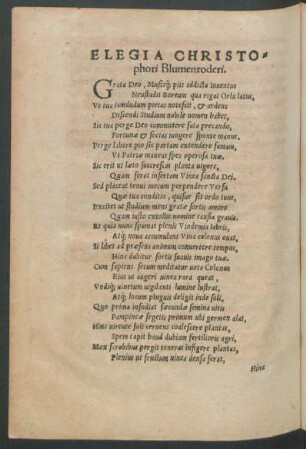 ELEGIA CHRISTO-
phori Blumenroderi.
Grata Deo, Musisq́; piis addicta iuuentus
Neustadii Boreum qua rigat Orla latus,
Vt tua iamdudum pietas notescit, & ardens
Discendi Studium nobile nomen habet,
Sic tua perge Deo committere fata precando,
Fortunæ & socias iungere sponte manus.
Perge labore pio sic partam extendere famam,
Vt Patriæ maneas spes operosa tuæ.
Sic erit ut læto succrescat planta uigore,
Quam ferat insertam Vinea sancta Dei.
Sed placeat tenui mecum perpendere Versu
Quæ tua conditio, quisue sit ordo tuus,
Excitet ut studium mens gratæ sortis amore
Quam iusto extollit nomine causa grauis.
Et quia nunc spumat plenis Vindemia labris,
Atq́; noua accumulans Vina colonus ouat,
Si libet ad præsens animum conuertere tempus,
Hinc dabitur sortis suauis imago tuæ.
Cum sapiens secum meditatur uota Colonus
Eius ut augeri uinea rara queat,
Vndiq́; uinetum uigilanti lumine lustrat,
Atq́; locum pinguis deligit inde soli,
Quo prima infodiat fœcundæ semina uitis
Pampineæ segetis primum ubi germen alat,
Hinc uirtute soli ueniens coalescere plantas,
Spem capit haud dubiam fertilioris agri,
Mox scrobibus pergit teneras infigere plantas,
Plenius ut fructum uinea densa ferat,
Hinc